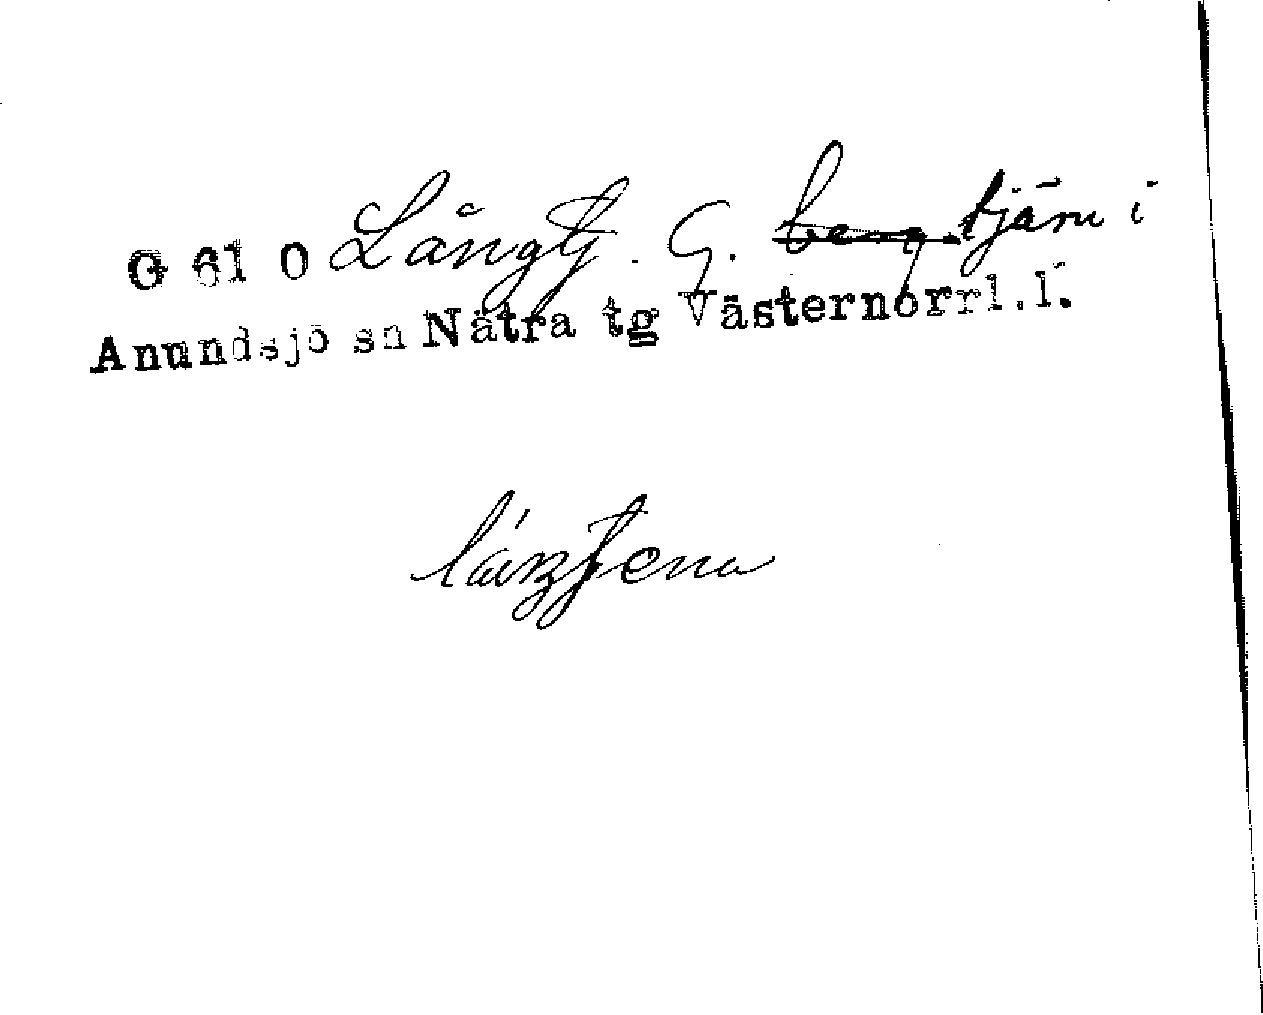 G 61 O Långtj. G. berg. tjärn i
Anundsjö sn Nätra tg Västernorrl.l.